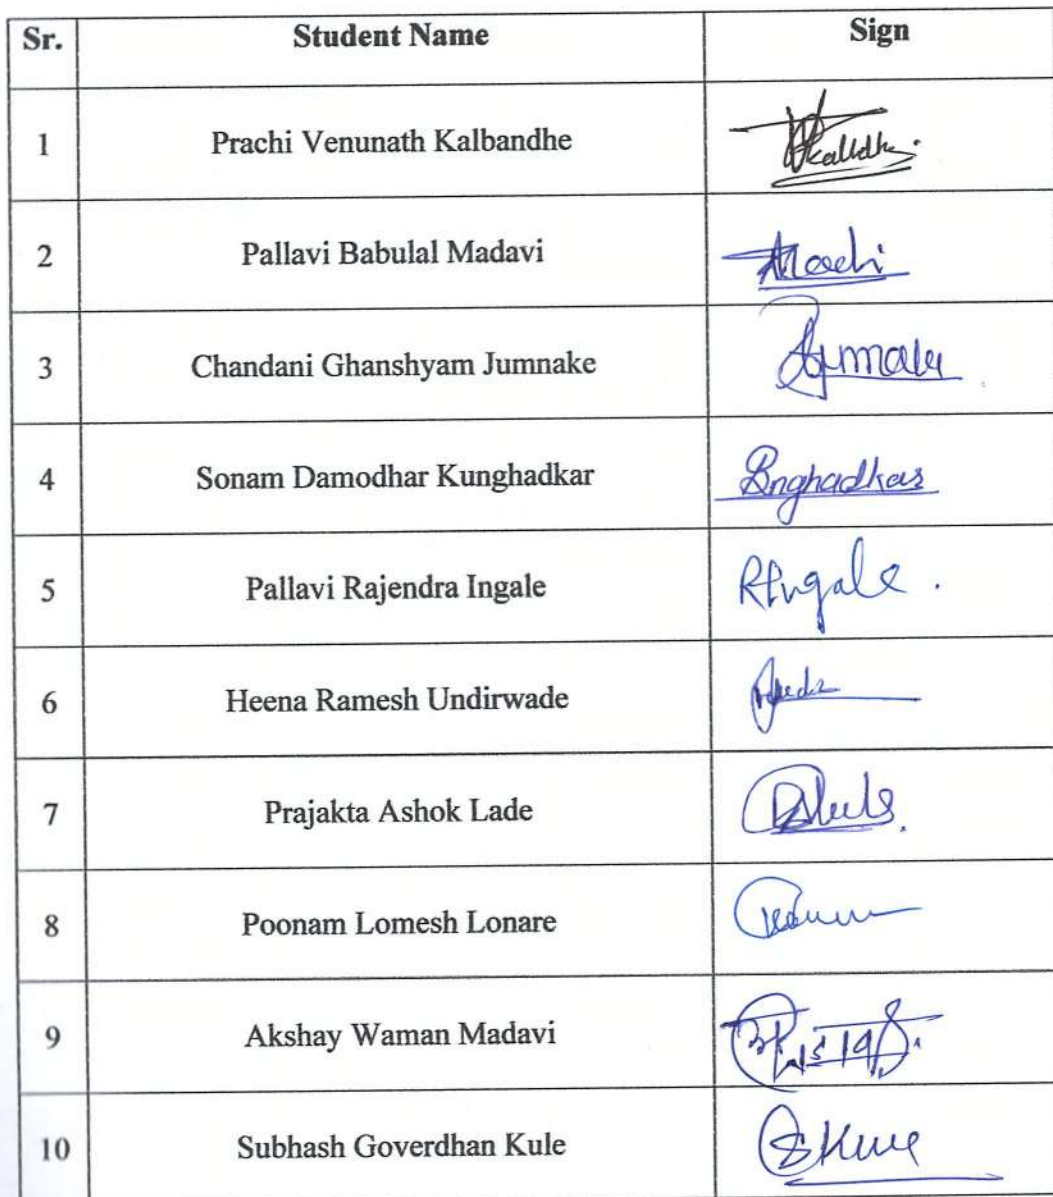 Sr. Student Name Sign
1 Prachi Venunath Kalbandhe
2 Pallavi Babulal Madavi
3 Chandani Ghanshyam Jumnake
4 Sonam Damodhar Kunghadkar
5 Pallavi Rajendra Ingale RIngale.
6 Heena Ramesh Undirwade
7 Prajakta Ashok Lade
8 Poonam Lomesh Lonare
9 Akshay Waman Madavi
10 Subhash Goverdhan Kule